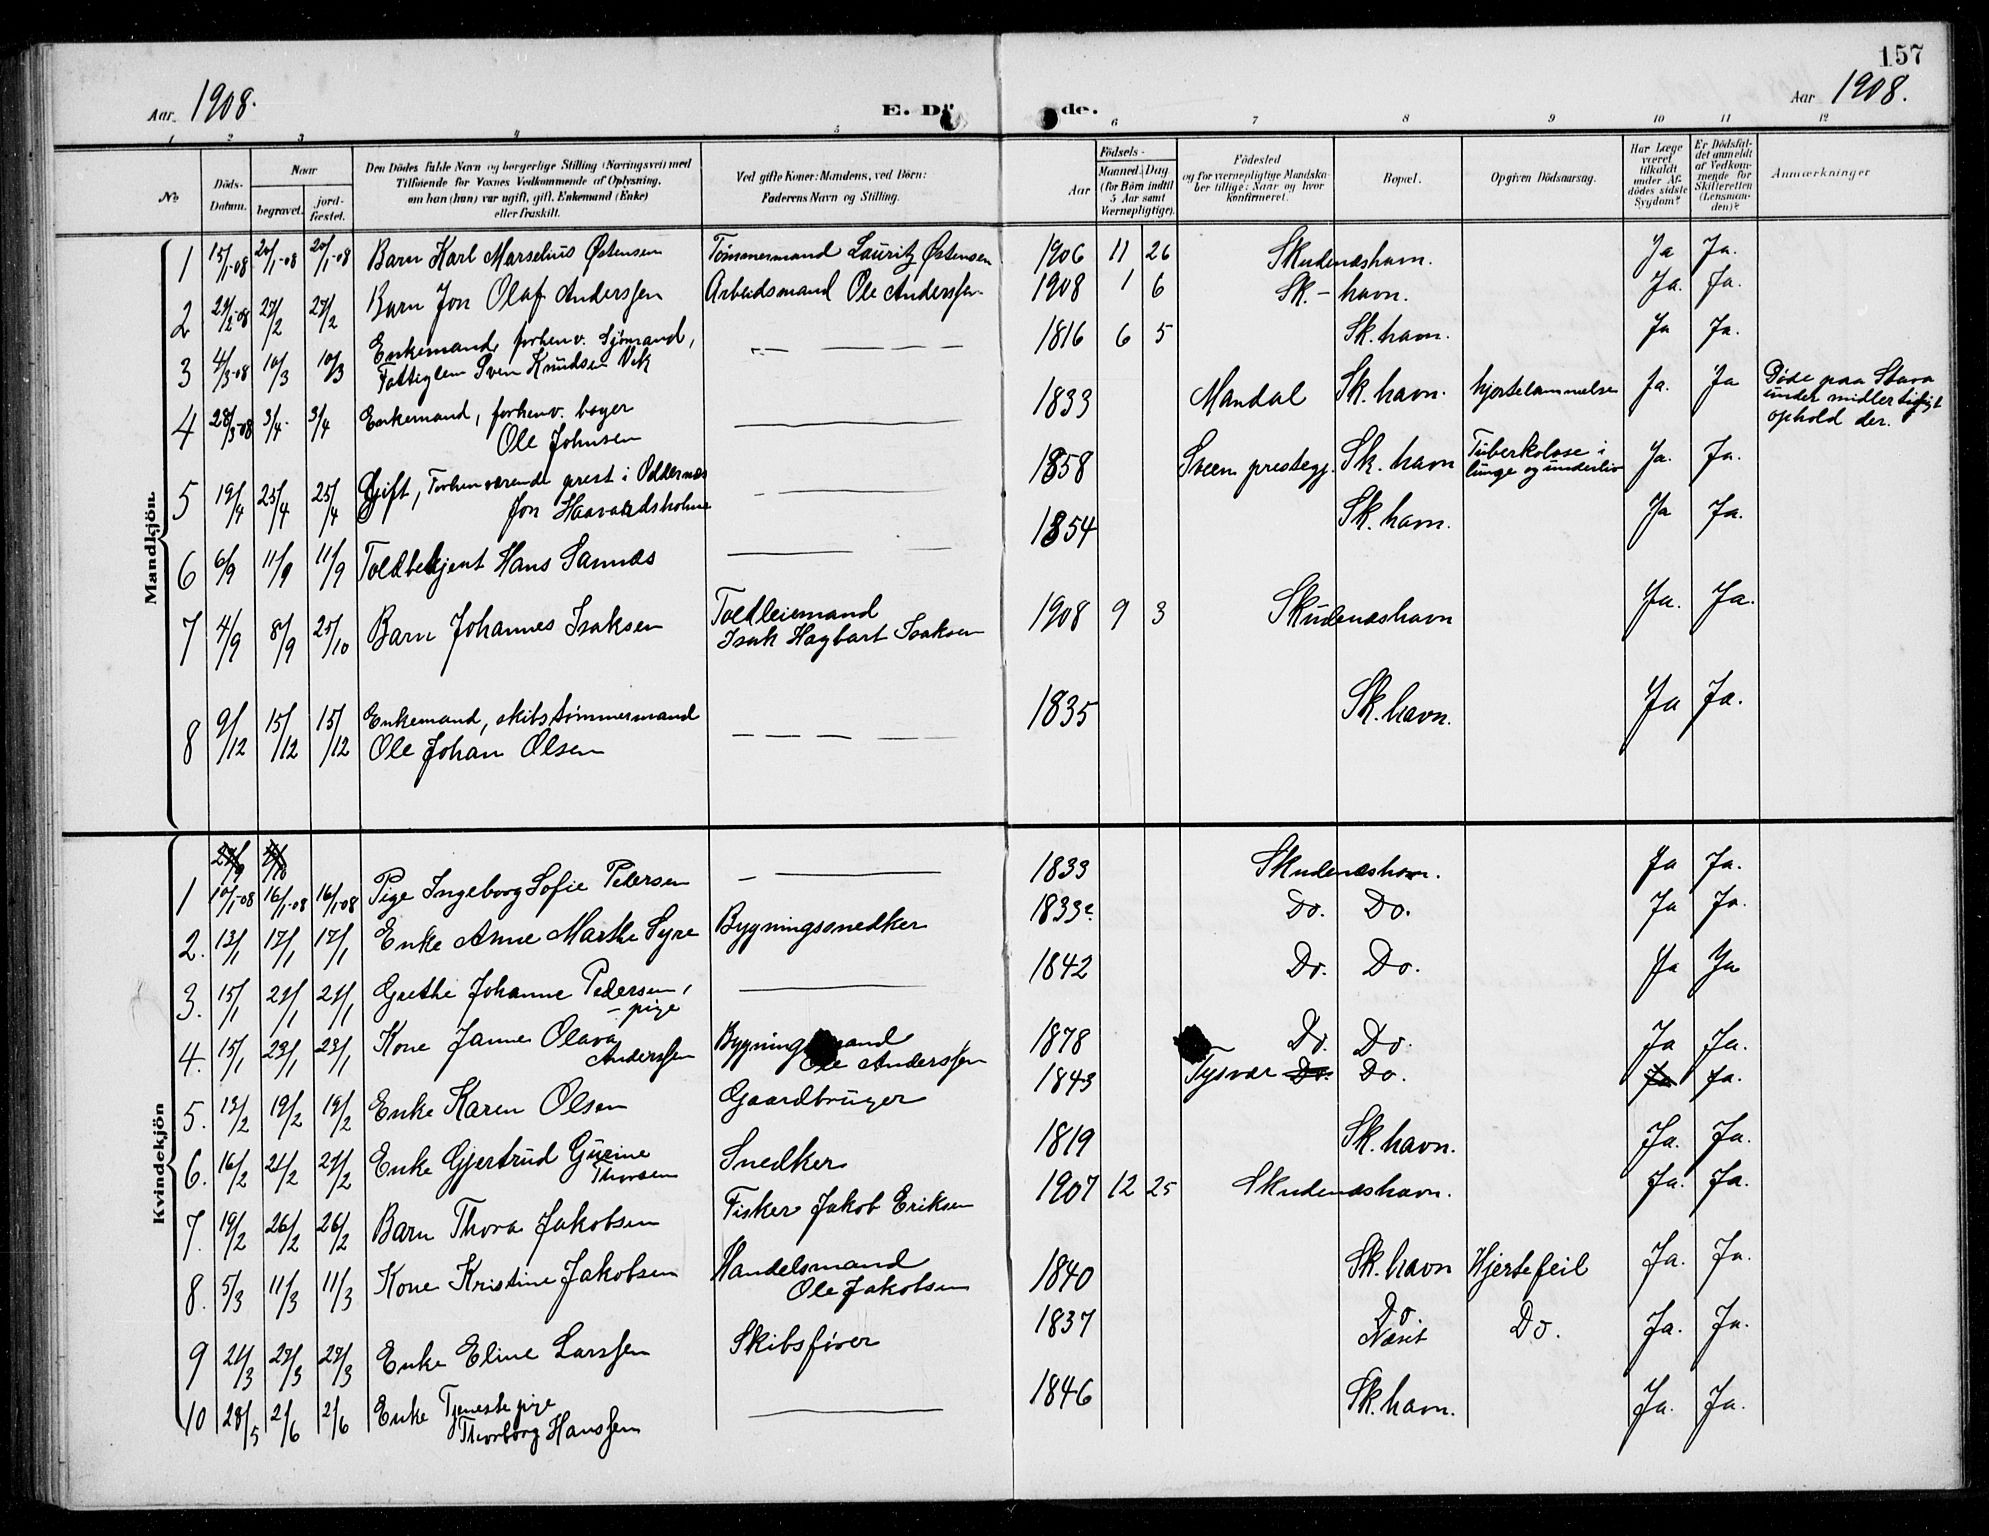 157
Aar 1908.
E. Döde.
Aar 1908.
1 2 3 4 5 6 7 8 9 10 11 12
No
Döds-Datum.
Naar
begravet.
jord-fæstet.
Den Dödes fulde Navn og borgerlige Stilling (Næringsvei) med
Tilföiende for Voxnes Vedkommende af Oplysning,
om han (hun) var ugift, gift, Enkemand (Enke)
eller fraskilt.
Ved gifte Koner: Mandens, ved Börn:
Faderens Navn og Stilling.
Födsels-
Aar
Maaned. Dag
(for Börn indtil
5 Aar samt
Værnepligtige).
Födested
og for værnepligtige Mandska-
ber tillige: Naar og hvor
konfirmeret.
Bopæl.
Opgiven Dödsaarsag.
Har Læge
været
tilkaldt
under Af-
dödes sidste
Sygdom?
Er Dödsfal-
det anmeldt
af Vedkom-
mende for
Skifteretten
(Lensman-
den)?
Anmærkninger
Mandkjön.
1 15/1-08 20/1-08 20/1-08 Barn Karl Marselius Østensen Tømmermand Lauritz Østensen 1906 11 26 Skudenæshavn. Ja Ja.
2 22/2-08 27/2 27/2 Barn Jon Olaf Anderssen Arbeidsmand Ole Anderssen 1908 1 6 Sk.-havn. Ja. Ja.
3 4/3-08 10/3 10/3 Enkemand, forhenv. Sjømand, 1816 6 5 Sk. havn. Ja Ja.
Fattiglem Sven Knudsen Vik
4 28/3-08 3/4 3/4 Enkemand, forhenv. bager 1833 Mandal Sk. havn. hjertelammelse Ja. Ja Døde paa Stava
Ole Johnsen under midlertidigt
ophold der.
5 19/4 25/4 25/4 Gift, Forhenværende prest i Oddernæs 1858 Sveen prestegj. Sk. havn Tuberkolose i Ja. Ja.
Jon Haavardsholm lunge og underliv
6 6/9 11/9 11/9 Toldbetjent Hans Sannæs 1854 Sk. havn. Ja Ja.
7 4/9 8/9 25/10 Barn Johannes Isaksen Toldleiemand 1908 9 3 Skudenæshavn Ja. Ja.
Isak Hagbart Isaksen
8 9/12 15/12 15/12 Enkemand, skibstømmermand 1835 Sk. havn. Ja Ja.
Ole Johan Olsen
Kvindekjön
1 10/1-08 16/1-08 16/1-08 Pige Ingeborg Sofie Petersen 1833 Skudenæshavn. Ja Ja.
2. 13/1 17/1 17/1 Enke Anne Marthe Syre Bygningssnedker 1833 Do. Do. Ja Ja.
3. 15/1 21/1 21/1 Grethe Johanne Pedersen, 1842 Do. Do. Ja Ja
- pige
4. 15/1 23/1 23/1 Kone Janne Olava Bygningsmand 1878 Do. Do. Ja Ja.
Anderssen Ole Anderssen
5. 13/2 19/2 19/2 Enke Karen Olsen Gaardbruger 1843 Tysvær Do. Do. Ja Ja.
6. 16/2 21/2 21/2 Enke Gjertrud Gurine Snedker 1819 Sk. havn. Ja. Ja.
Thorsen
7. 19/2 26/2 26/2 Barn Thora Jakobsen Fisker Jakob Eriksen 1907 12 25 Skudenæshavn. Ja. Ja.
8. 5/3 11/3 11/3 Kone Kristine Jakobsen Handelsmand 1840 Sk. havn Hjertefeil Ja. Ja.
Ole Jakobsen
9 21/3 27/3 27/3 Enke Eline Larssen Skibsfører 1837 Do. Do. Ja. Ja.
10 28/5 2/6 2/6 Enke Tjenestepige 1846 Sk. havn. Ja. Ja.
Thorborg Hanssen